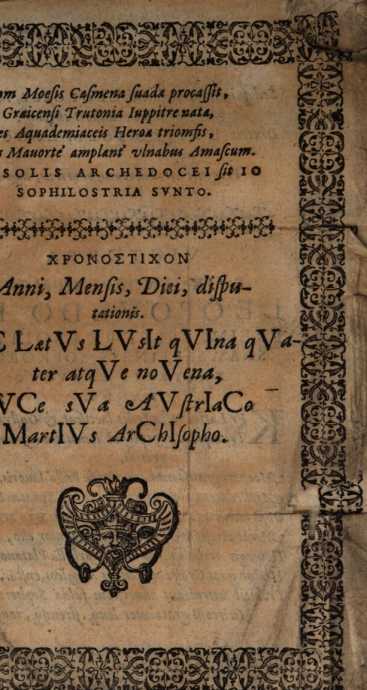 Moesis Casmena suada procassit,
Graicensi Trutonia Iuppitre nata,
Aquademiaceis Heroa triomfis,
Mavorte amplant vlnabus Amascum.
SOLIS ARCHEDOCEI sit IO
SOPHILOSTRIA SVNTO.
ΧΡΟΝΟΣΤΙΧΟΝ
Anni, Mensis, Diei, dispu-
tationis.
LætVs LVsIt qVIna qVa-
ter atqVe noVena,
sVa AVstrIaCo
MartIVs ArChIsopho.